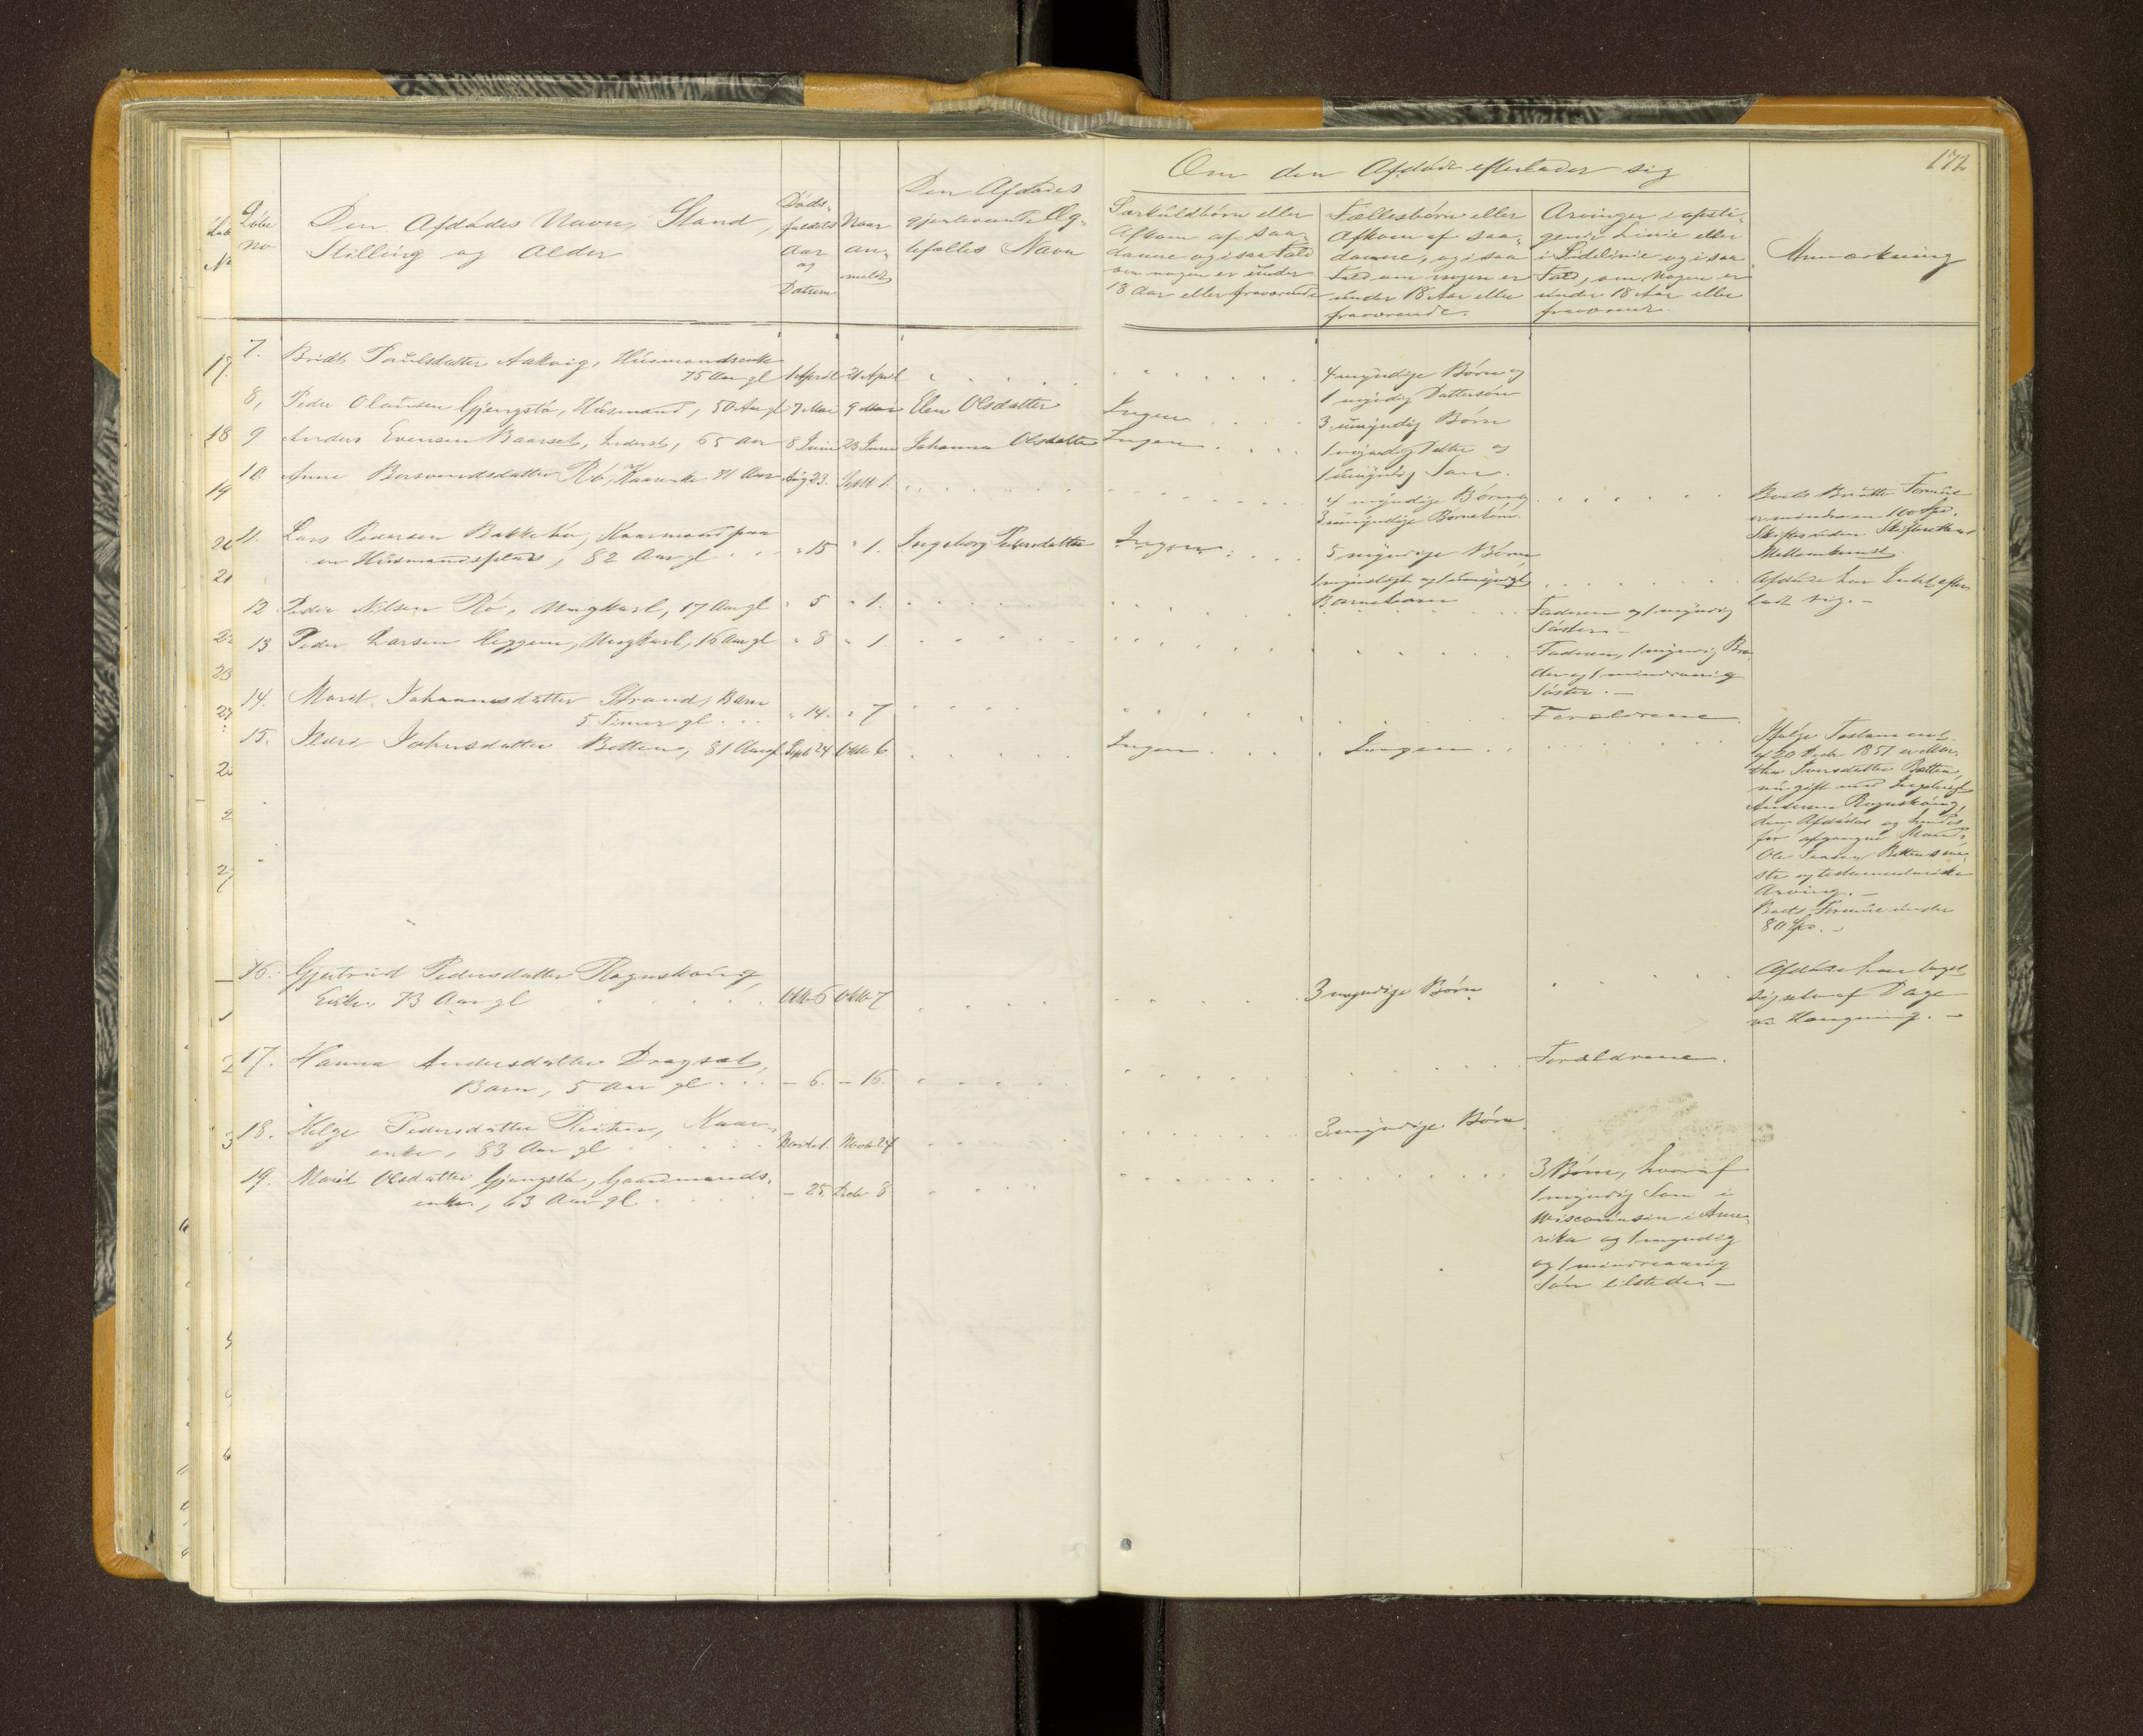 172
Løbe
No
Den Afdødes Navn, Stand,
Stilling og Alder
Døds-
faldets
Aar
og
Datum
Naar
an-
meldt
Den Afdødes
gjenlevende Æg-
tefælles Navn
Om den Afdøde efterlader sig
Særkuldbørn eller
Afkom af saa-
danne og i saa Fald
om nogen er under
18 Aar eller fraværende
Fællesbørn eller
Afkom af saa-
danne, og i saa
Fald om nogen er
under 18 Aar eller
fraværende.
Arvinger i opsti-
gende Linie eller
i Sidelinie og i saa
Fald, om Nogen er
under 18 Aar eller
fraværende.
Anmærkning
7. Paulsdatter Aakvig, Husmandsenke
75 Aar gl 1 April 21 April
4 myndige Børn og
1 myndig Dattersøn
8, Peder Olausen Gjengstø, Husmand, 50 Aar gl 7 Mai 9 Mai Elen Olsdatter Ingen
3 umyndig Børn
9 Anders Evensen Baarset, Inderst, 65 Aar 8 Juni 23 Juni Johanna Olsdatter Ingen
1 myndig Datter og
1 umyndig Søn.
10. Anne Rø, Kaarenke 71 Aar Aug 23. Septb 1.
4 myndige Børn og
3 umyndige Børnebørn.
Boets Brutto Formue
er mindre end 100 Spd.
11. Lars Pedersen Bakkebø, Kaarmand paa
en Husmandsplads, 82 Aar gl " 15 " 1. Ingeborg Pedersdatter Ingen
5 myndige Børn,
1 myndigt og 1 umyndigt
Barnebarn
Afdøde har Intet efter-
ladt sig. —
12 Peder Nilsen Rø, Ungkarl, 17 Aar gl " 5 " 1.
Faderen og 1 myndig
Søster. —
13 Peder Larsen Heggem, Ungkarl, 16 Aar gl " 8 " 1.
Faderen, 1 myndig Bro-
der og 1 mindreaarig
Søster. —
14. Marit Johannesdatter Strand, Barn
5 Timer gl " 14. " 7
Forældrene.
15. Johnsdatter Betten, 81 Aar gl Septb 24 Oktb 6
Ingen Ingen
Ifølge Testament
af 20 Decb 1851 er Mar-
tha Iversdatter Betten,
nu gift med
Andersen Rognskoug,
den Afdødes og hendes
før afgangne Mands
Ole Betten ene-
ste og testamentariske
Arving. —
Boets Formue under
80 Spd. —
16. Gjertrud Pedersdatter Rognskoug,
Enke, 73 Aar gl Oktb 6 Oktb 7
3 myndige Børn
Afdøde har taget
sig selv af Dage
ved Hængning. —
17. Hanna Andersdatter Dragset,
Barn, 5 Aar gl — 6. — 16.
Forældrene.
18. Helge Pedersdatter Reiten, Kaar-
enke, 83 Aar gl Novb 1. Novb 24
3 myndige Børn.
19. Marit Olsdatter Gjengstø, Gaardmands-
enke, 63 Aar gl — 25. Decb 8
3 Børn, hvoraf
1 myndig Søn i
Wisconsin i Ame-
rika og 1 myndig
og 1 mindreaarig
Søn tilstede. —